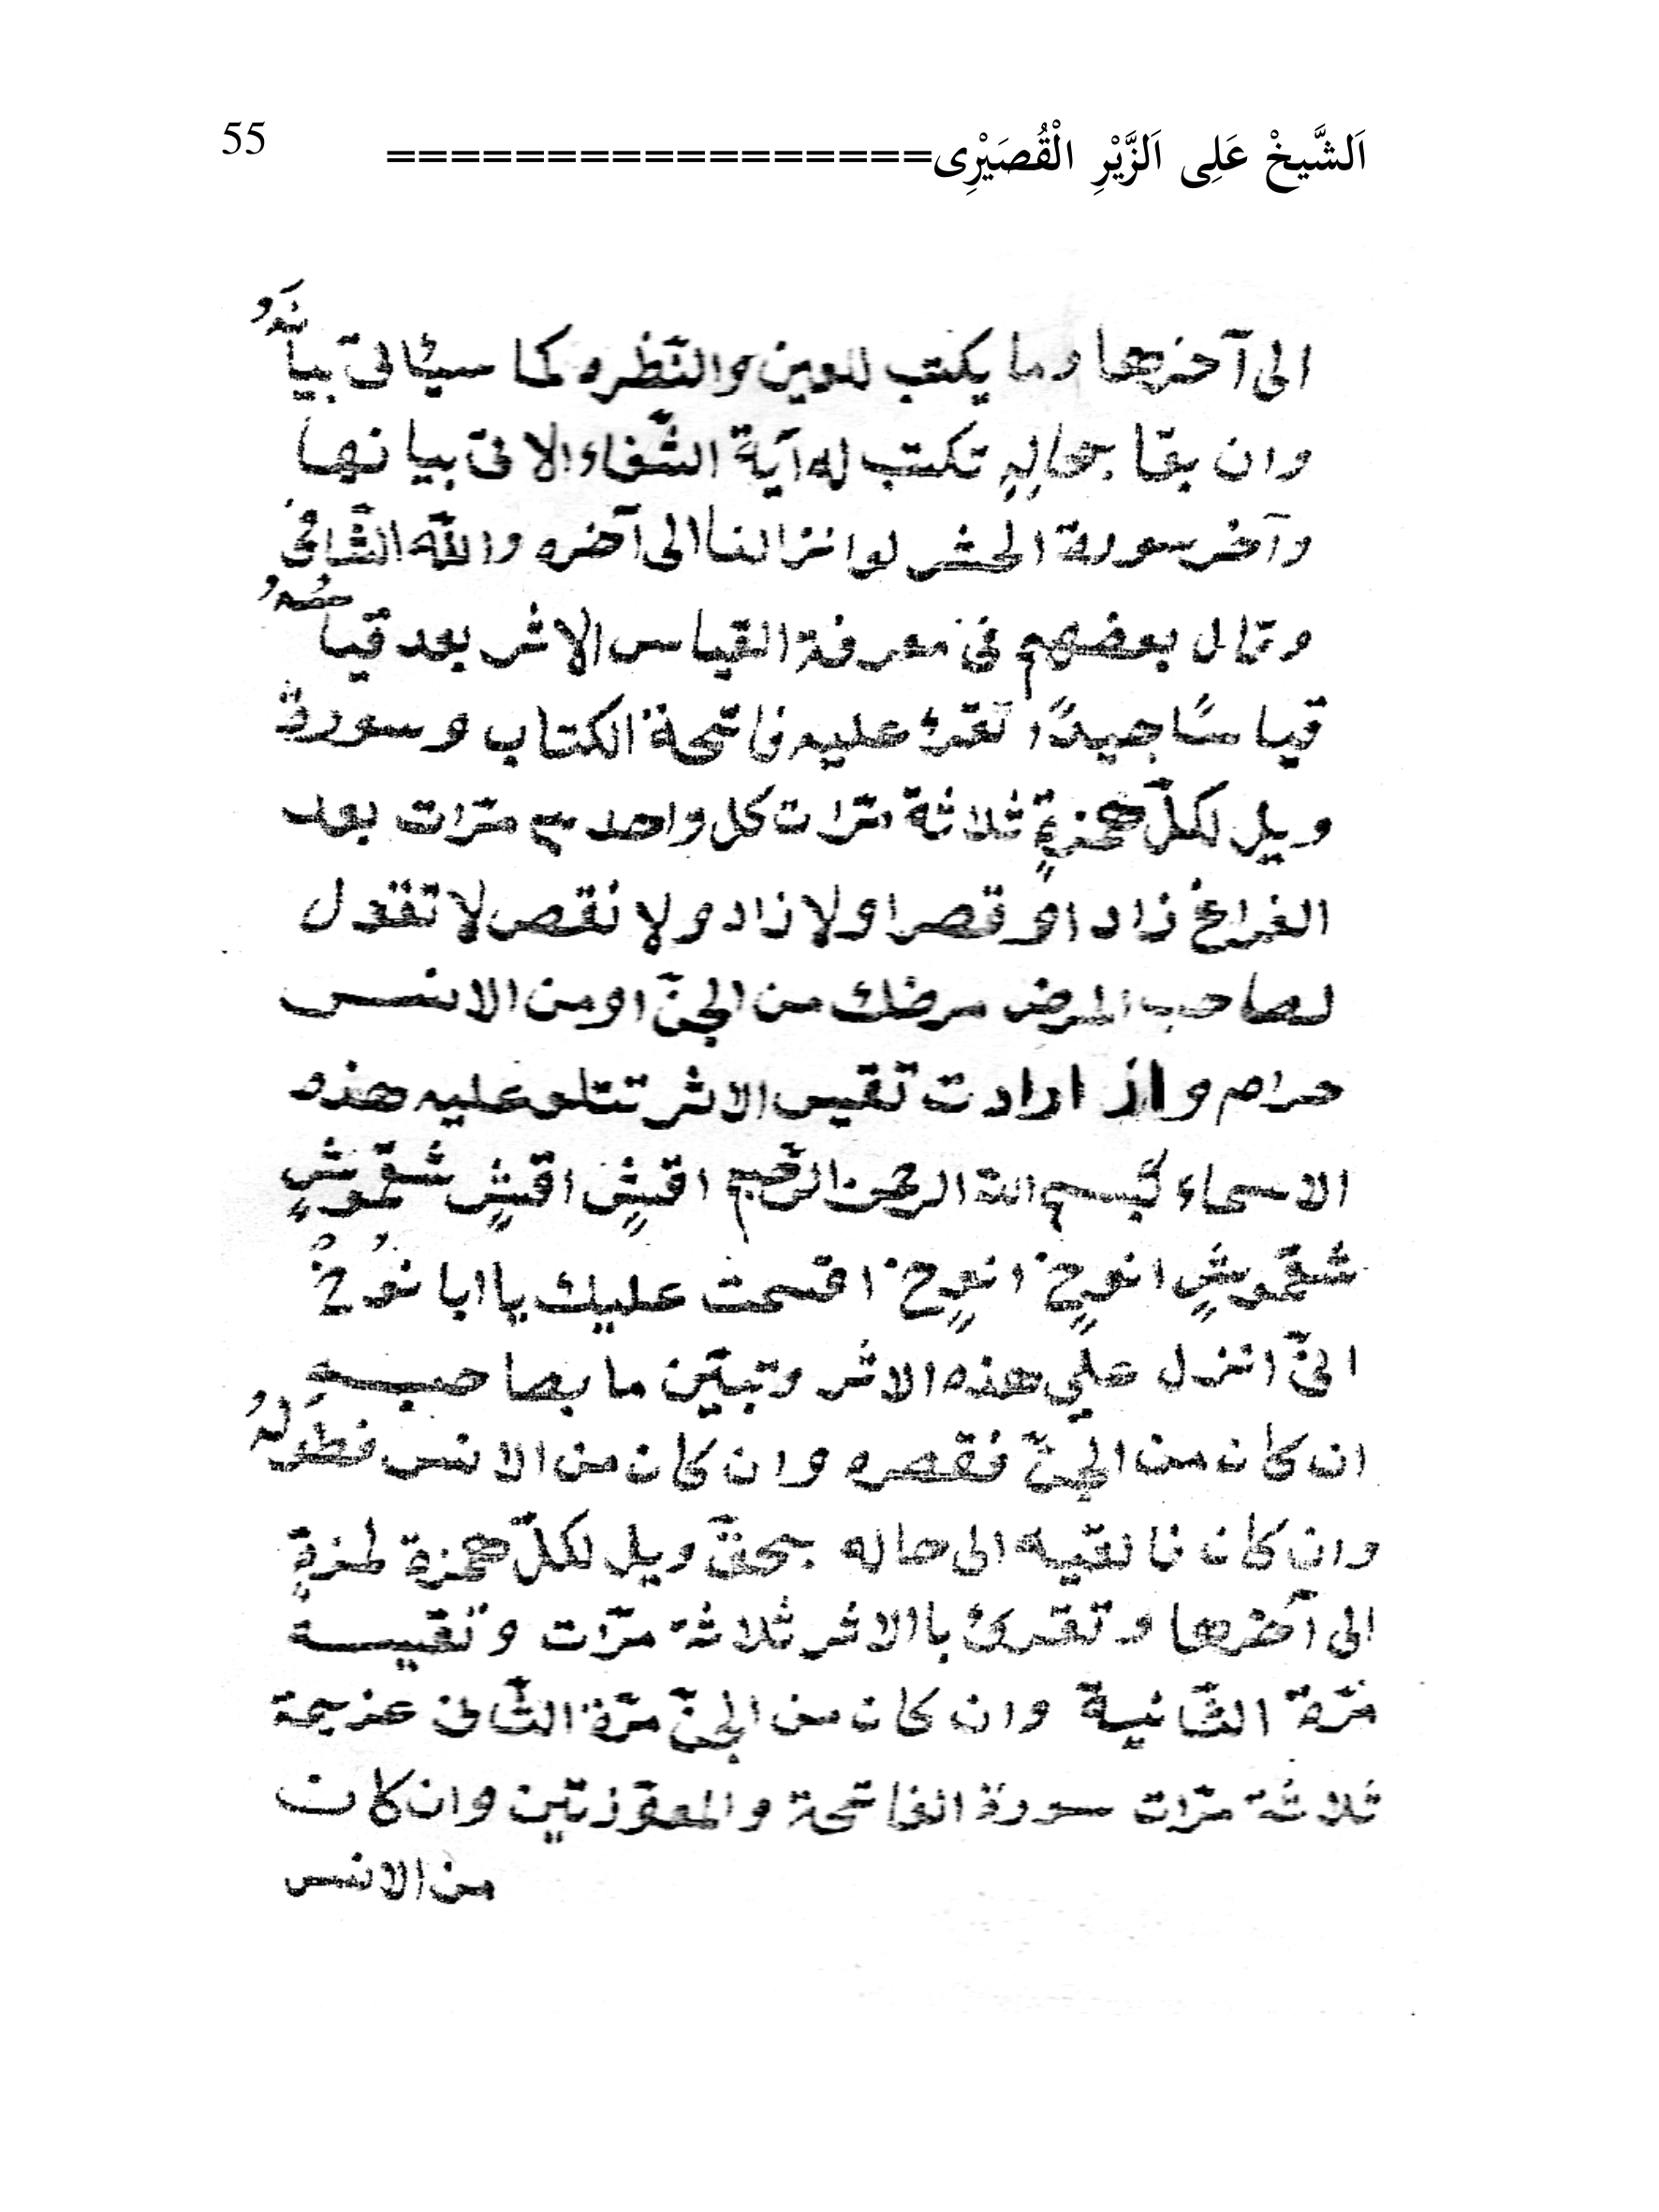 اَلشَّيخْ عَلِى اَلزَّيْرِ الْقُصَيْرِى================= 55
الى آخرها وما يكتب للعين والنّظره كما سيئاتى بيانَهُ
وان بقا بحالِهِ تكتب له آية الشّفاء الاتى بيانها
وآخر سورة الحشر لوانزالنا الى آخره والله الشّافى
وقال بعضهم فى معرفة القياس الاثر بعد قياصُهُ
قياسًا جيدًا تقرئ عليه فاتحة الكتاب وسورة
ويل لكلّ همزةٍ ثلاثة مرّات كل واحد مرّات بعد
الفراغ زاد او قصر اولا زاد ولا نقص لا تقول
لصاحب المرض مرضك من الجنّ اومن الانس
حرام واز ارادت تقيس الاثر تتلو عليه هذه
الاسماء بسم الله الرحمن الرّحيم اقشٍ اقشٍ شقموشٍ
شقموشٍ انوخٍ انوخٍ اقسمت عليك يا ابا نوُخُ
انّ اتنزل علي هذه الاثر وتبيّن ما بصاحبه
ان كان من الجنّ فقصره وان كان من الانس فطوَلهُ
وان كان فالقيه الى حاله بحقّ ويل لكلّ همزة لمزةٍ
الى آخرها وتقرئ باالاثر ثلاثة مرّات وتقيسه
مرّة الثّانية وان كان من الجنّ مرّة الثّانى عزيمة
ثلاثة مرّات سورة الفاتحة والمعوّزتين وان كان
من الانس